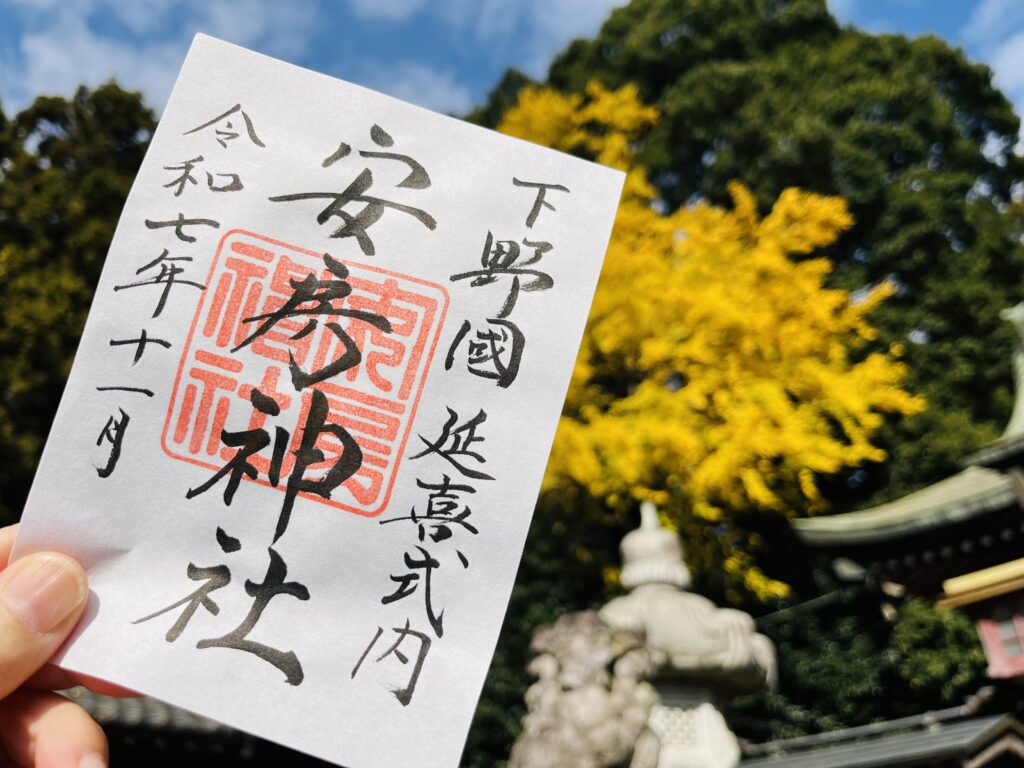 下野國 延喜式内
安房神社
令和七年十一月